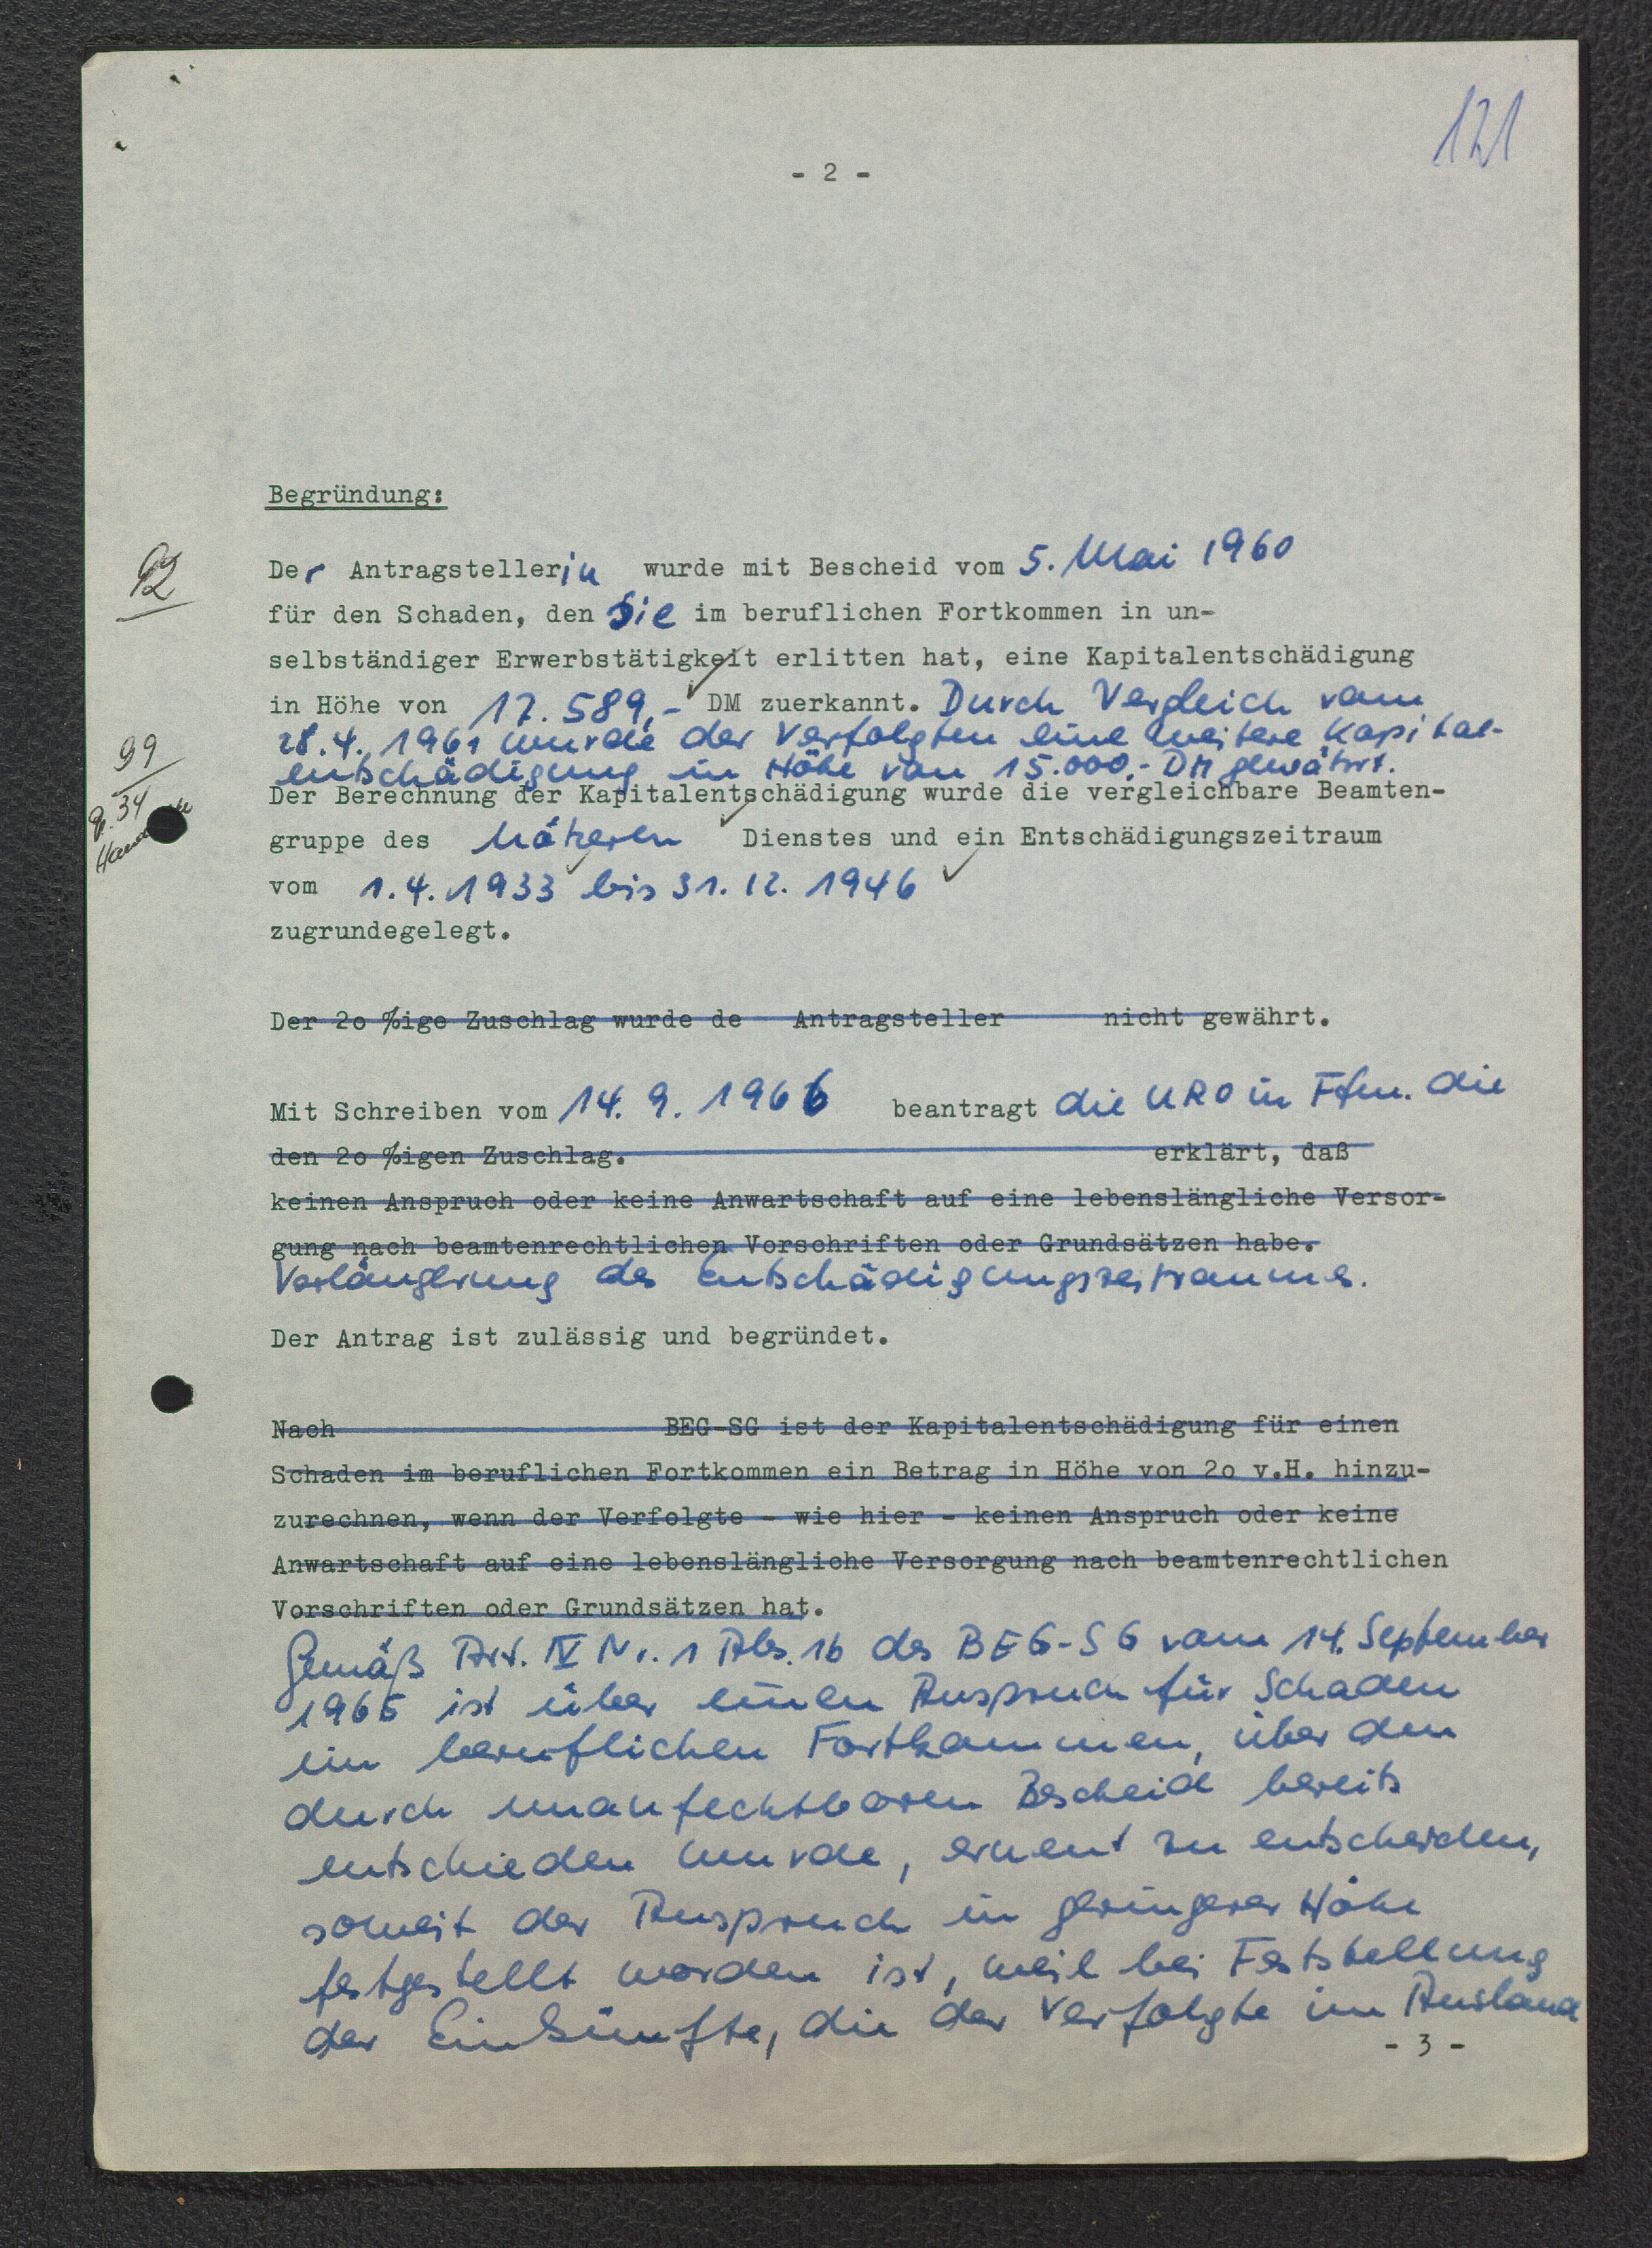 121
- 2 -
Begründung:
92
Der Antragstellerin wurde mit Bescheid vom 5. Mai 1960
für den Schaden, den sie im beruflichen Fortkommen in un-
selbständiger Erwerbstätigkeit erlitten hat, eine Kapitalentschädigung
in Höhe von 17.589,- DM zuerkannt. Durch Vergleich vom
28.4.1961 wurde der Verfolgten eine weitere Kapital-
99
entschädigung in Höhe von 15.000,- DM gewährt.
34
Der Berechnung der Kapitalentschädigung wurde die vergleichbare Beamten-
gruppe des höheren Dienstes und ein Entschädigungszeitraum
vom 1.4.1933 bis 31.12.1946
zugrundegelegt.
Der 2o %ige Zuschlag wurde de Antragsteller nicht gewährt.
Mit Schreiben vom 14.9.1966 beantragt die URO in Ffm. die
den 2o %igen Zuschlag. erklärt, daß
keinen Anspruch oder keine Anwartschaft auf eine lebenslängliche Versor-
gung nach beamtenrechtlichen Vorschriften oder Grundsätzen habe.
Verlängerung des Entschädigungszeitraumes.
Der Antrag ist zulässig und begründet.
Nach BEG-SG ist der Kapitalentschädigung für einen
Schaden im beruflichen Fortkommen ein Betrag in Höhe von 2o v.H. hinzu-
zurechnen, wenn der Verfolgte - wie hier - keinen Anspruch oder keine
Anwartschaft auf eine lebenslängliche Versorgung nach beamtenrechtlichen
Vorschriften oder Grundsätzen hat.
Gemäß Art. IV Nr. 1 Abs. 1b des BEG-SG vom 14. September
1965 ist über einen Anspruch für Schaden
im beruflichen Fortkommen, über den
durch unanfechtbaren Bescheid bereits
entschieden wurde, erneut zu entscheiden,
soweit der Anspruch in geringerer Höhe
festgestellt worden ist, weil bei Feststellung
der Einkünfte, die der Verfolgte im Ausland
- 3 -